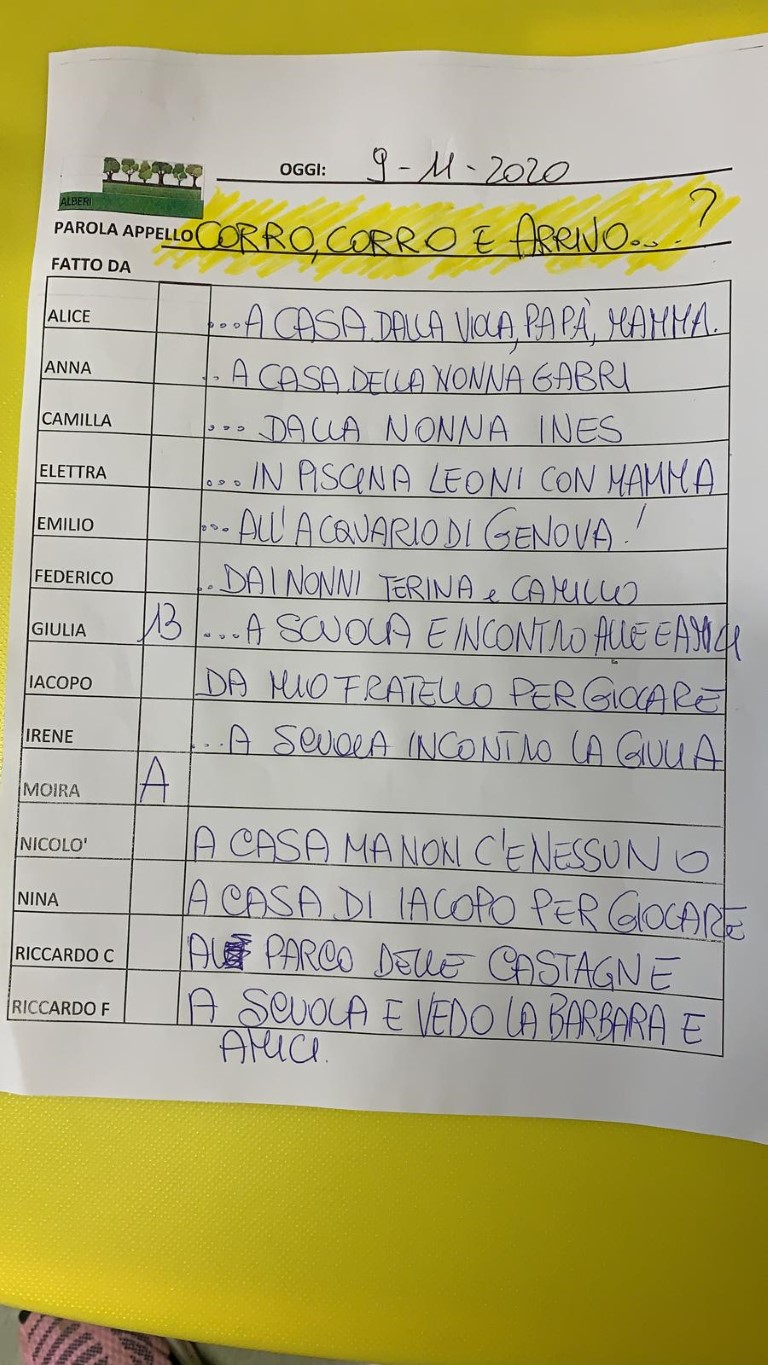 OGGI: 9-11-2020
ALBERI
PAROLA APPELLO CORRO, CORRO E ARRIVO....?
FATTO DA
ALICE ...A CASA DALLA VIOLA, PAPÀ, MAMMA.
ANNA .. A CASA DELLA NONNA GABRI
CAMILLA ... DALLA NONNA INES
ELETTRA ... IN PISCINA LEONI CON MAMMA
EMILIO ... ALL'ACQUARIO DI GENOVA!
FEDERICO .. DAI NONNI TERINA e CAMILLO
GIULIA 13 ...A SCUOLA E INCONTRO E AMICI
IACOPO DA MIO FRATELLO PER GIOCARE
IRENE ...A SCUOLA INCONTRO LA GIULIA
MOIRA A
NICOLO' A CASA MA NON C'E NESSUNO
NINA A CASA DI IACOPO PER GIOCARE
RICCARDO C AL PARCO DELLE CASTAGNE
RICCARDO F A SCUOLA E VEDO LA BARBARA E
AMICI.